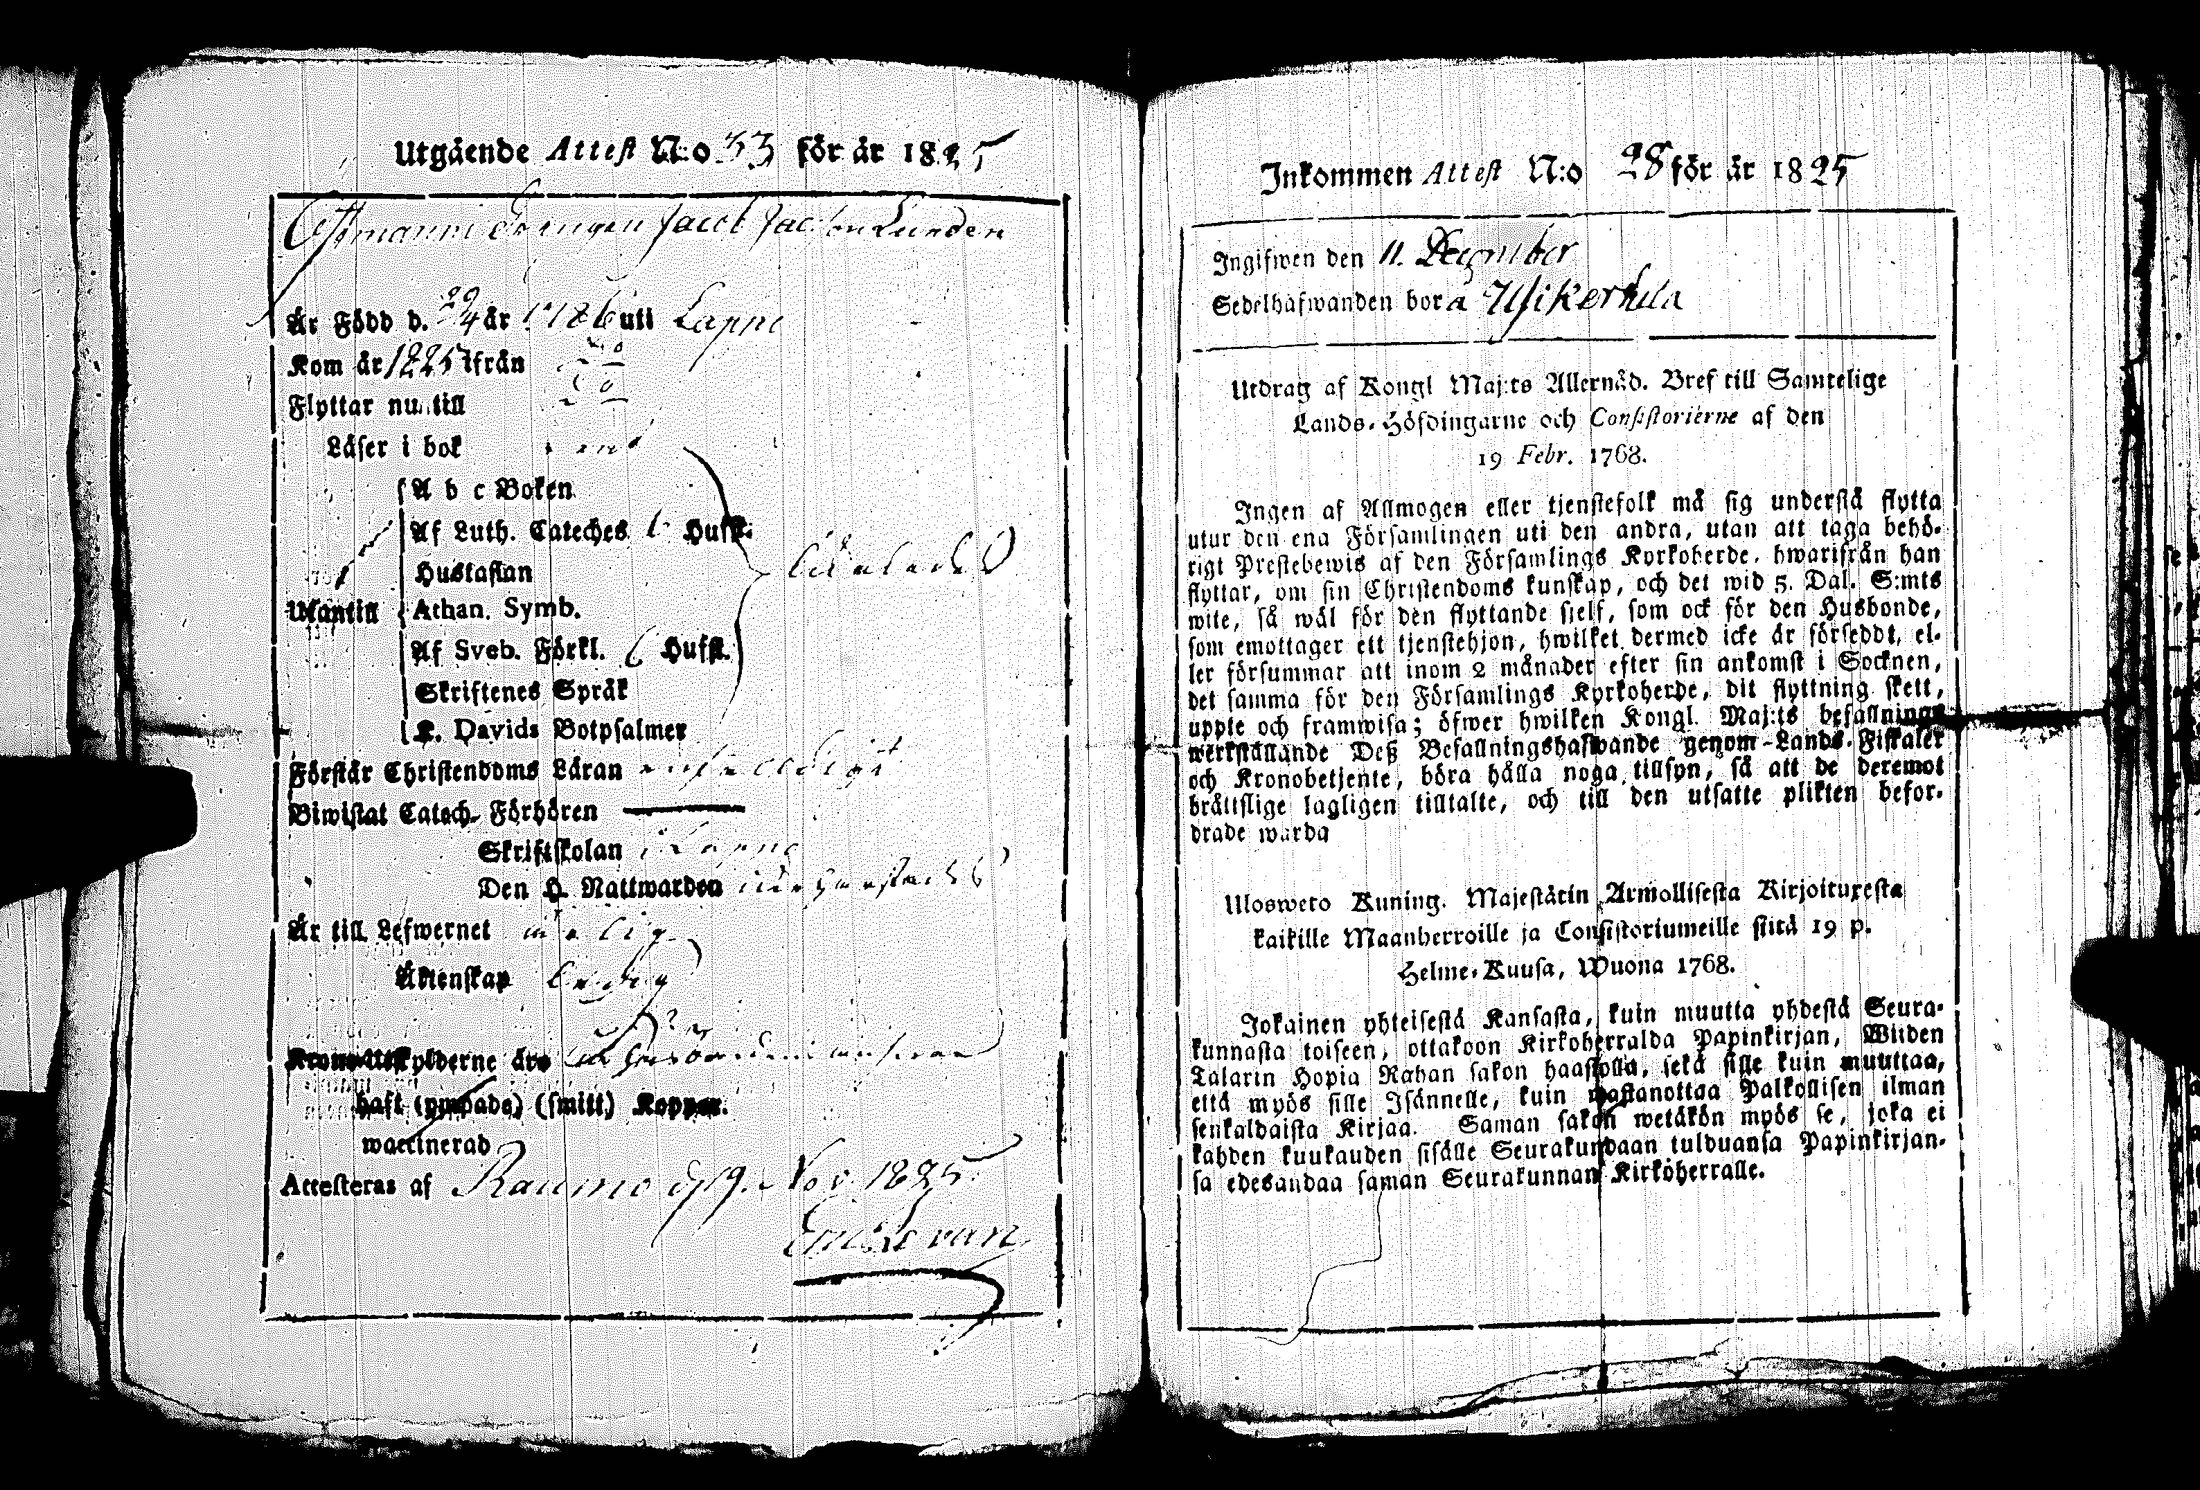 Utgående Attest N:o 33 för år 1825
Jacob Jacobsson Lunden
Är Född d. 29/4 år 1786 uti Lappi
Kom år 1825 ifrån Do
Flyttar nu till Do
Läser i bok
A b c Boken
Af Luth. Cateches 6 Hufst.
Hustaflan
Utantill Athan. Symb.
Af Sveb. Förkl. 6 Hufst.
Skriftenes Språk
K. Davids Botpsalmer
Förstår Christendoms Läran enfaldigt
Biwistat Catech. Förhören
Skriftskolan i Lappi
Den H. Nattwarden
Är till Lefwernet
Äktenskap ledig
Krono-Utskylderne äro
haft (ympade) (smitt) Koppor.
waccinerad
Attesteras af Raumo d. 9. Nov. 1825
Inkommen Attest N:o 28 för år 1825
Ingifwen den 11. December
Sedelhafwanden bor å
Utdrag af Kongl Maj:ts Allernåd. Bref till Samtelige
Lands-Höfdingarne och Consistorierne af den
19 Febr. 1768.
Ingen af Allmogen eller tjenstefolk må sig understå flytta
utur den ena Församlingen uti den andra, utan att taga behö-
rigt Prestebewis af den Församlings Kyrkoherde, hwarifrån han
flyttar, om sin Christendoms kunskap, och det wid 5. Dal. S:mts
wite, så wäl för den flyttande sjelf, som ock för den Husbonde,
som emottager ett tjenstehjon, hwilket dermed icke är försedd, el-
ler försummar att inom 2 månader efter sin ankomst i Socknen,
det samma för den Församlings Kyrkoherde, dit flyttning skett,
uppte och framwisa; öfwer hwilken Kongl. Maj:ts befallnings
werkställande Deß Befallningshafwande genom Lands-Fiskaler
och Kronobetjente, böra hålla noga tillsyn, så att de deremot
bråttslige lagligen tilltalte, och till den utsatte plikten befor-
drade warda
Ulosweto Kuning. Majestätin Armollisesta Kirjoituxesta
kaikille Maanherroille ja Consistoriumeille siitä 19 p.
Helme-Kuusa, Wuona 1768.
Jokainen yhteisestä Kansasta, kuin muutta yhdestä Seura-
kunnasta toiseen, ottakoon Kirkoherralda Papinkirjan, Wiiden
Talarin Hopia Rahan sakon haastolla, sekä sille kuin muuttaa,
että myös sille Isännelle, kuin wastanottaa Palkollisen ilman
senkaldaista Kirjaa. Saman sakon wetäkön myös se, joka ei
kahden kuukauden sisälle Seurakundaan tulduansa Papinkirjan-
sa edesandaa saman Seurakunnan Kirköherralle.